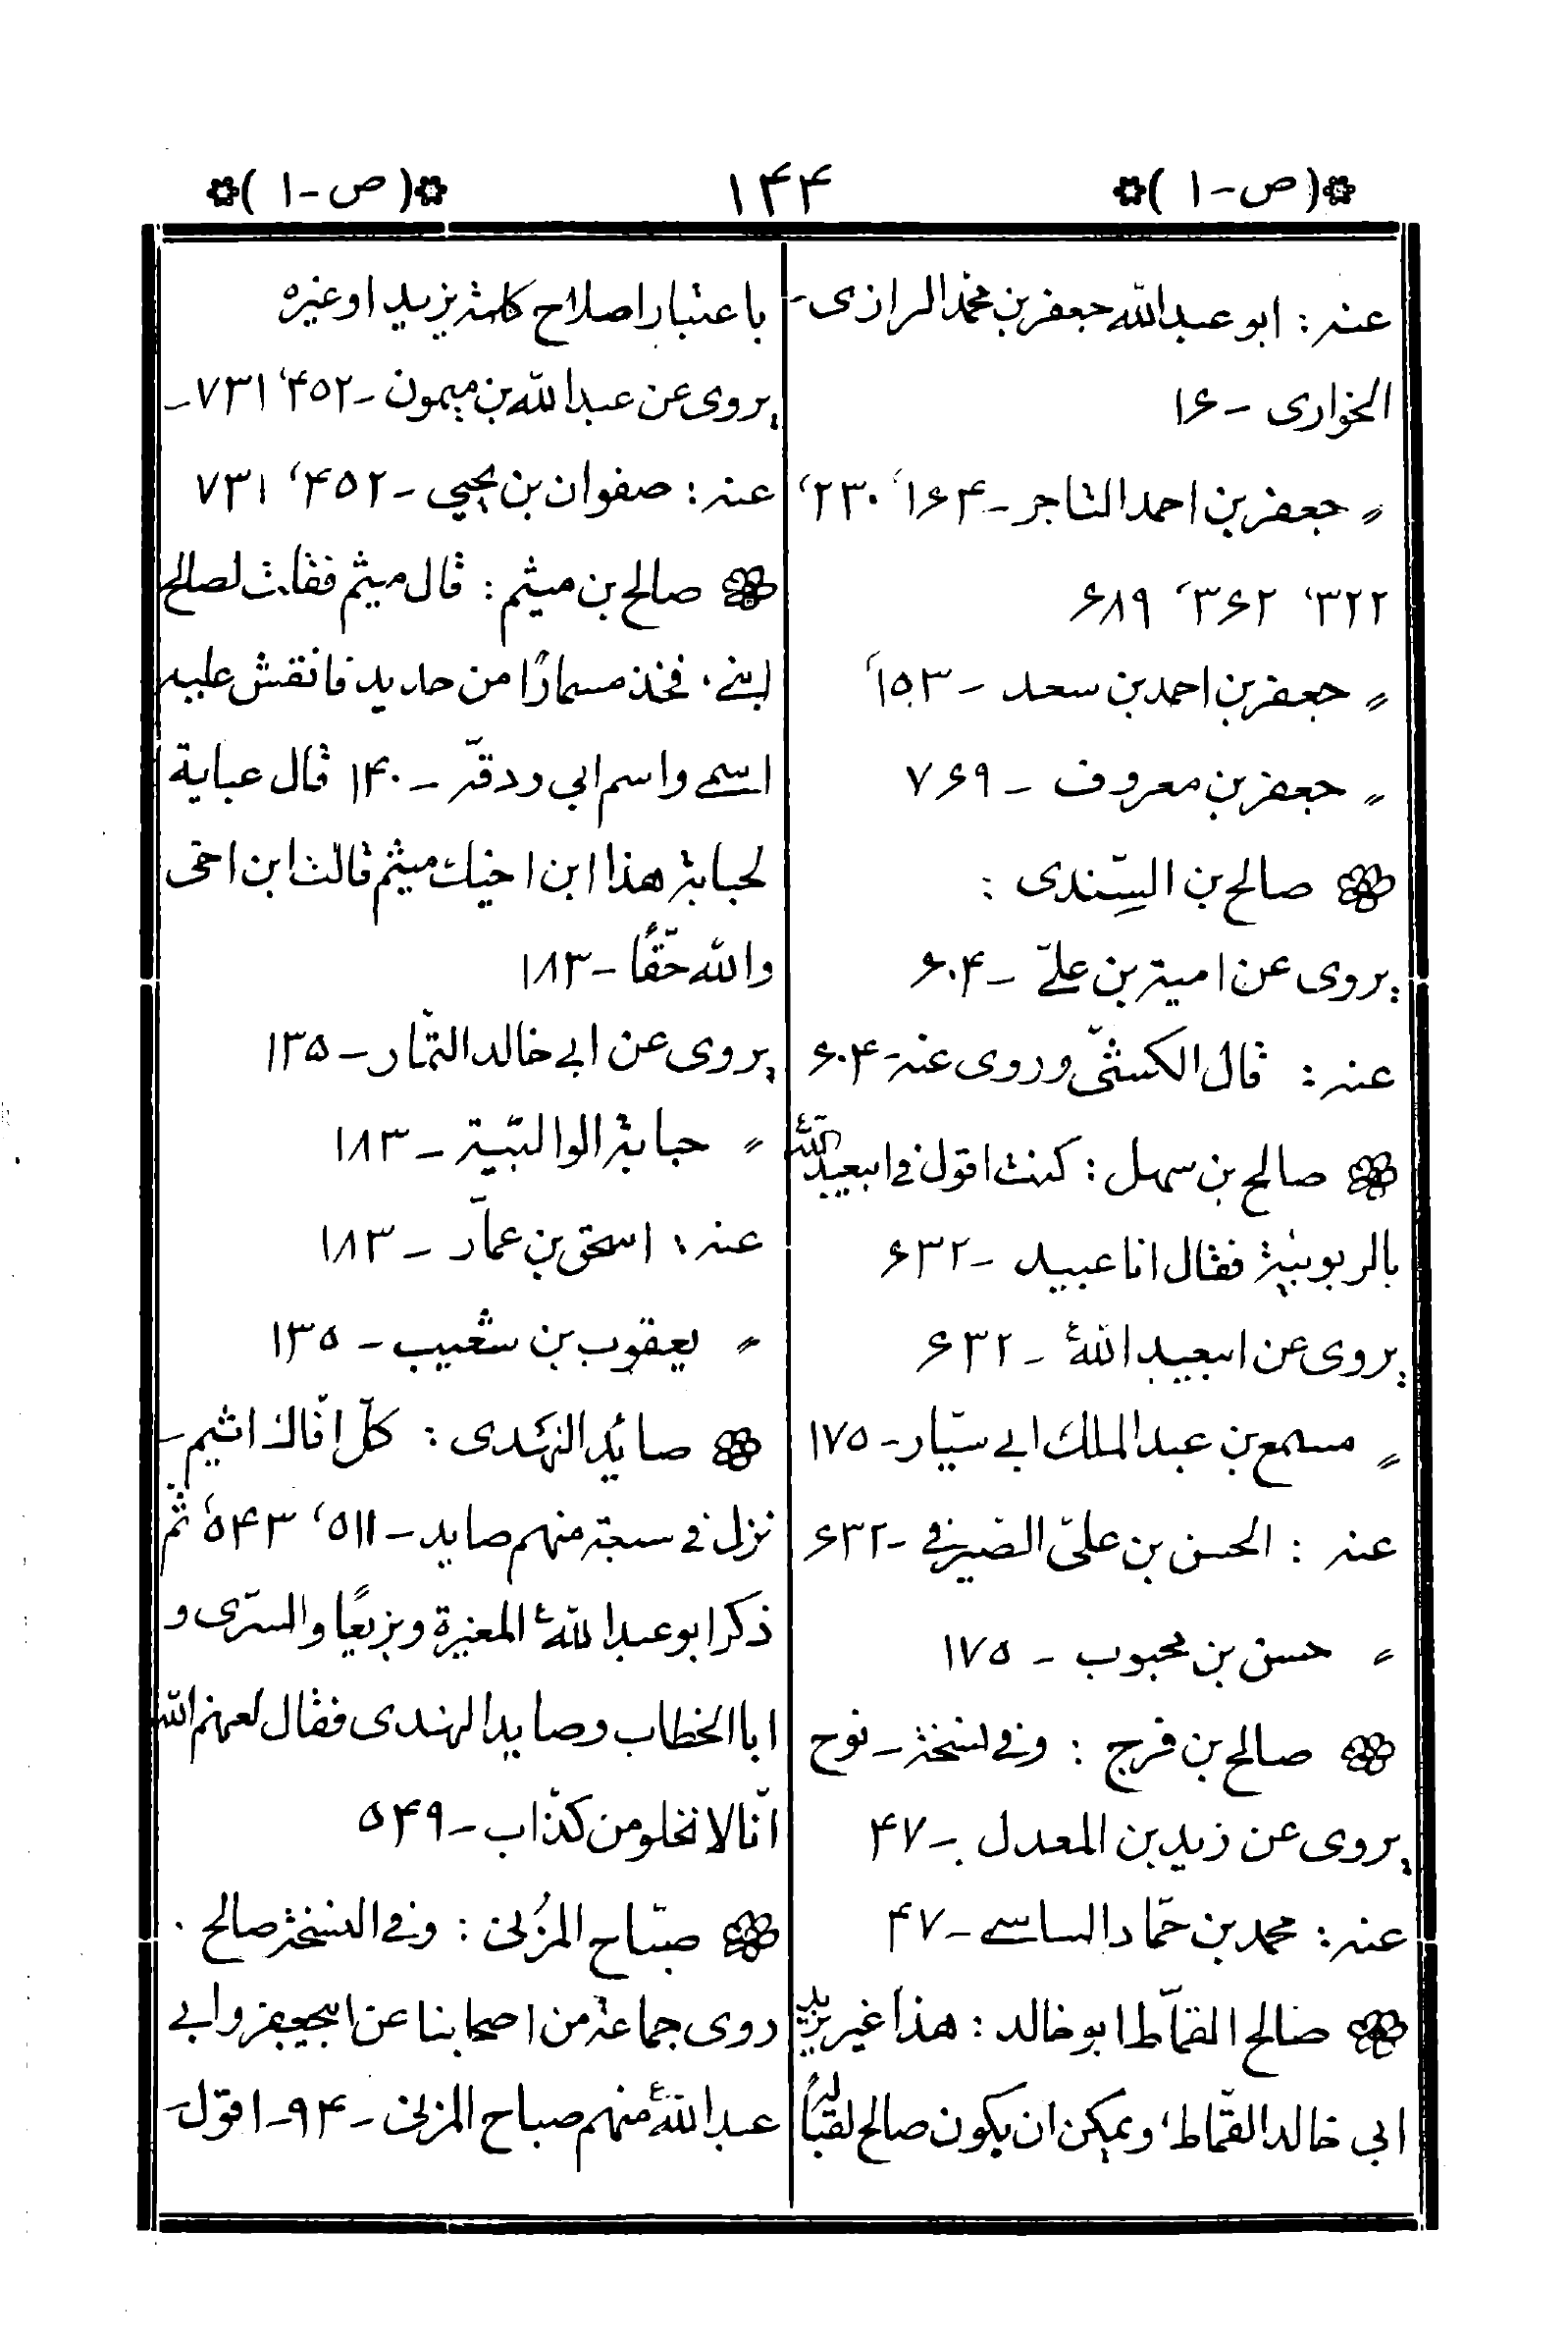 (ص-۱)
۱۴۴
(ص-۱)
عنه: ابو عبدالله جعفر بن محمد الرازی-
الخواری -۱۶
〃 جعفر بن احمد التاجر-۱۶۴، ۲۳۰،
۳۲۲، ۳۶۲، ۶۸۹
〃 جعفر بن احمد بن سعد - ۱۵۳
〃 جعفر بن معروف - ۷۶۹
صالح بن السِّندی :
یروی عن امیة بن علیّ -۶۰۴
عنه: قال الکشّی وروی عنه-۶۰۴
صالح بن سهل: کنت اقول فی ابیعبداللّهؑ
بالربوبیّة فقال انا عبید -۶۳۲
یروی عن ابیعبداللّهؑ - ۶۳۲
〃 مسمع بن عبدالملك ابی سیّار-۱۷۵
عنه : الحسن بن علیّ الصّیرفی -۶۳۲
〃 حسن بن محبوب - ۱۷۵
صالح بن فرج : وفی نسخة-نوح
یروی عن زید بن المعدل -۴۷
عنه: محمد بن حمّاد الساسی-۴۷
صالح القمّاط ابو خالد: هذا غیر یزید
ابی خالد القمّاط، ویمکن ان یکون صالح لقبًا له
باعتبار اصلاح کلمة یزید او غیره
یروی عن عبدالله بن میمون -۴۵۲، ۷۳۱-
عنه: صفوان بن یحیی -۴۵۲، ۷۳۱
صالح بن میثم: قال میثم فقلت لصالح
ابنی، فخذ مسمارًا من حدید فانقش علیه
اسمی واسم ابی ودقّه -۱۴۰ قال عبایة
لحبابة هذا ابن اخیك میثم قالت ابن اخی
والله حقًّا -۱۸۳
یروی عن ابی خالد التمّار-۱۳۵
〃 حبابة الوالبیّة -۱۸۳
عنه: اسحق بن عمّار -۱۸۳
〃 یعقوب بن شعیب -۱۳۵
صاید النهدی: کلّ افّاك اثیم-
نزل فی سبعة منهم صاید-۵۱۱، ۵۴۳، ثم
ذکر ابو عبداللّهؑ المغیرة وبزیعًا والسرّی و
ابا الخطاب وصاید الهندی فقال لعنهم الله
انّا لا نخلو من کذّاب-۵۴۹
صبّاح المزُنی: وفی النسخة صالح.
روی جماعة من اصحابنا عن ابیجعفر وابی
عبداللّهؑ منهم صباح المزنی-۹۴-اقول-